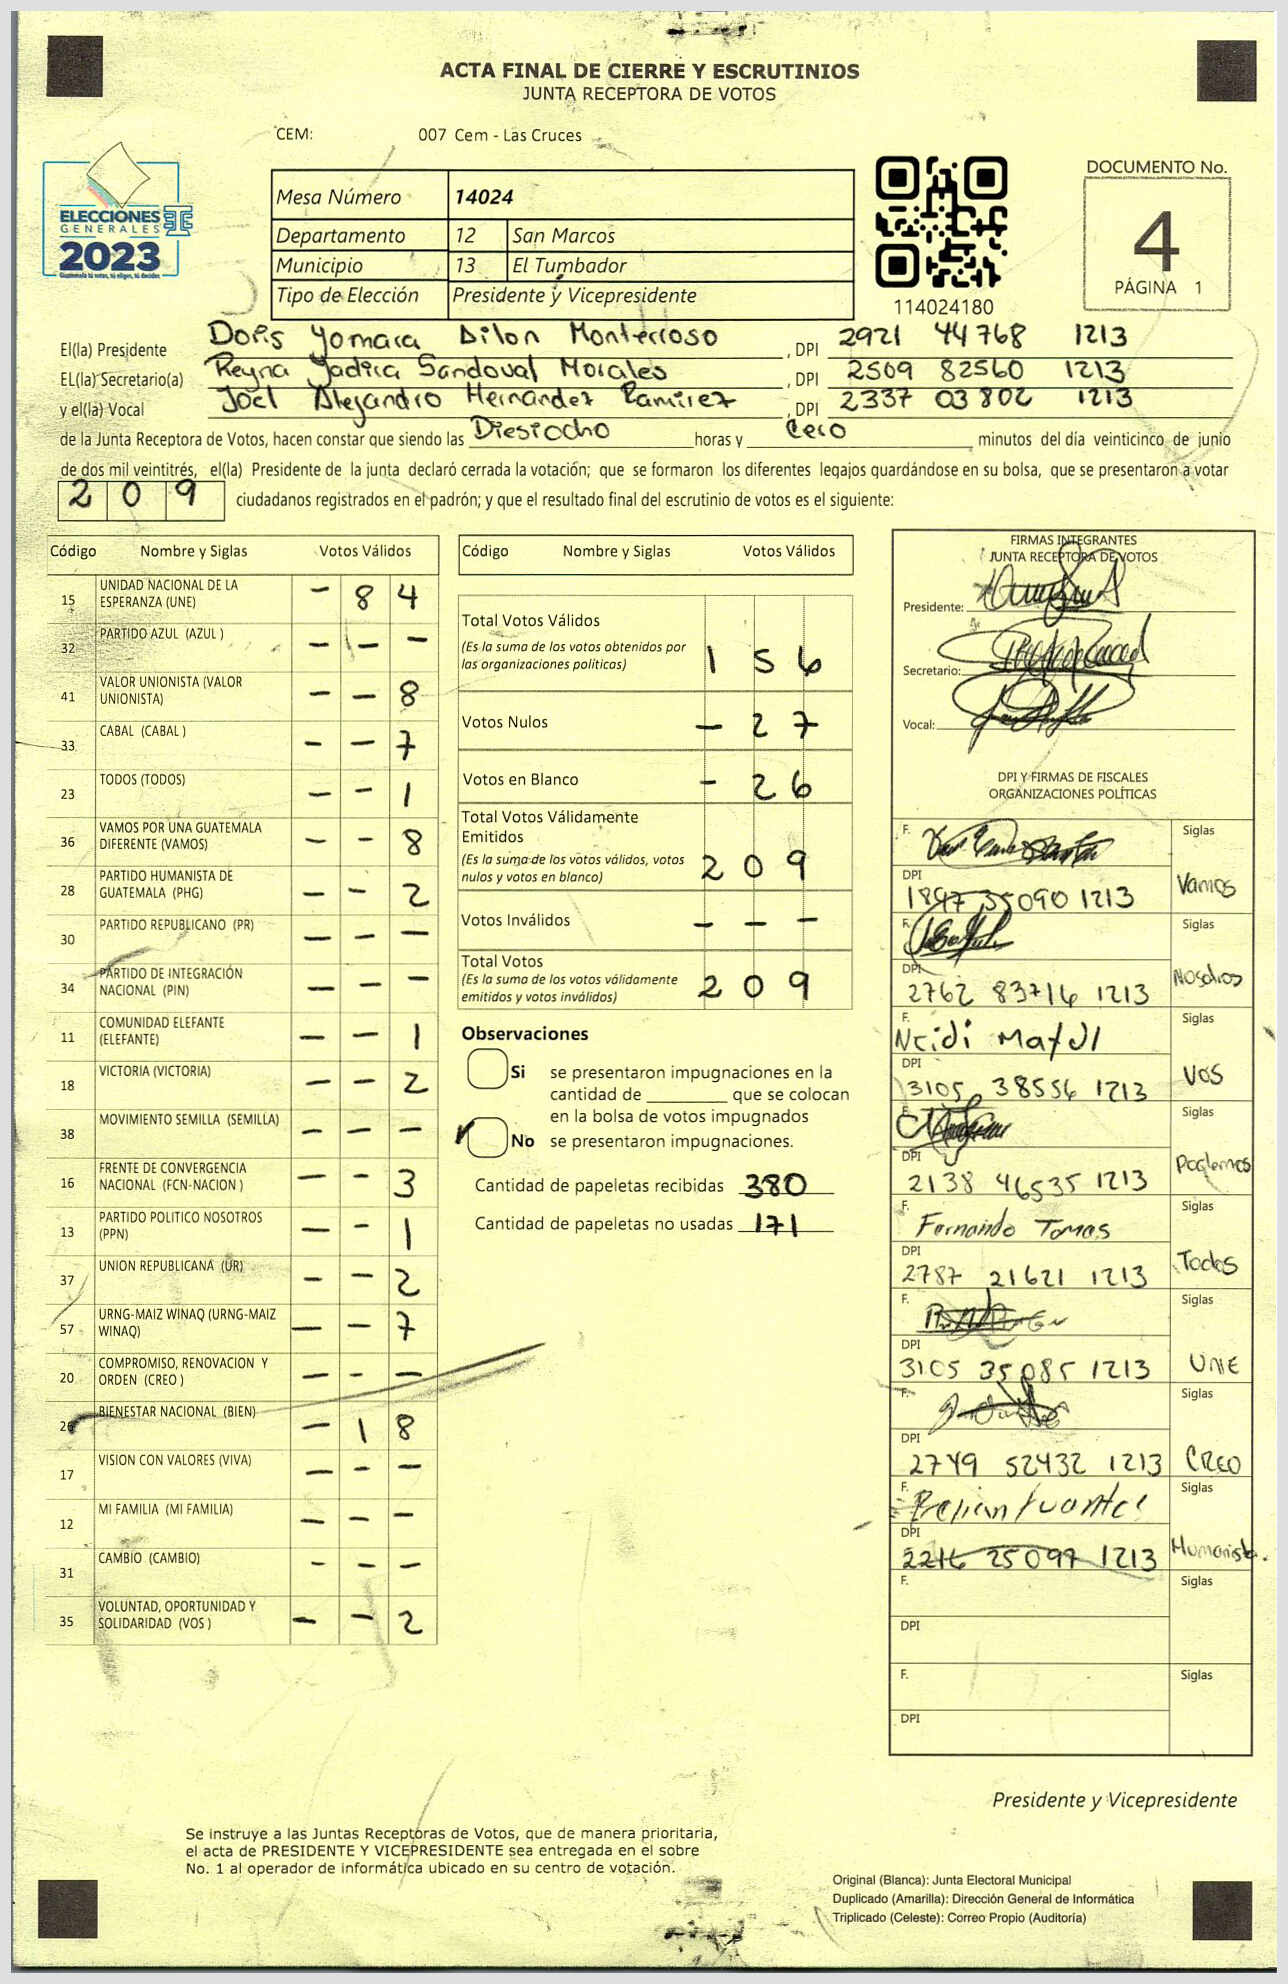 ACTA FINAL DE CIERRE Y ESCRUTINIOS
JUNTA RECEPTORA DE VOTOS
CEM: 007 Cem - Las Cruces
ELECCIONES
GENERALES
2023
Mesa Número 14024
Departamento 12 San Marcos
Municipio 13 El Tumbador
Tipo de Elección Presidente y Vicepresidente
114024180
DOCUMENTO No.
4
PÁGINA 1
El(la) Presidente Doris Yomara Dilon Monterroso , DPI 2921 44768 1213
EL(la) Secretario(a) Reyna Yadira Sandoval Morales , DPI 2509 82560 1213
y el(la) Vocal Joel Alejandro Hernández Ramirez , DPI 2337 03802 1213
de la Junta Receptora de Votos, hacen constar que siendo las Diesiocho horas y Cero minutos del día veinticinco de junio
de dos mil veintitrés, el(la) Presidente de la junta declaró cerrada la votación; que se formaron los diferentes legajos guardándose en su bolsa, que se presentaron a votar
209 ciudadanos registrados en el padrón; y que el resultado final del escrutinio de votos es el siguiente:
Código Nombre y Siglas Votos Válidos
15 UNIDAD NACIONAL DE LA ESPERANZA (UNE) - 8 4
32 PARTIDO AZUL (AZUL ) - - -
41 VALOR UNIONISTA (VALOR UNIONISTA) - - 8
33 CABAL (CABAL ) - - 7
23 TODOS (TODOS) - - 1
36 VAMOS POR UNA GUATEMALA DIFERENTE (VAMOS) - - 8
28 PARTIDO HUMANISTA DE GUATEMALA (PHG) - - 2
30 PARTIDO REPUBLICANO (PR) - - -
34 PARTIDO DE INTEGRACIÓN NACIONAL (PIN) - - -
11 COMUNIDAD ELEFANTE (ELEFANTE) - - 1
18 VICTORIA (VICTORIA) - - 2
38 MOVIMIENTO SEMILLA (SEMILLA) - - -
16 FRENTE DE CONVERGENCIA NACIONAL (FCN-NACION ) - - 3
13 PARTIDO POLITICO NOSOTROS (PPN) - - 1
37 UNION REPUBLICANA (UR) - - 2
57 URNG-MAIZ WINAQ (URNG-MAIZ WINAQ) - - 7
20 COMPROMISO, RENOVACION Y ORDEN (CREO ) - - -
26 BIENESTAR NACIONAL (BIEN) - 1 8
17 VISION CON VALORES (VIVA) - - -
12 MI FAMILIA (MI FAMILIA) - - -
31 CAMBIO (CAMBIO) - - -
35 VOLUNTAD, OPORTUNIDAD Y SOLIDARIDAD (VOS ) - - 2
Código Nombre y Siglas Votos Válidos
Total Votos Válidos
(Es la suma de los votos obtenidos por
las organizaciones políticas) 1 5 6
Votos Nulos - 2 7
Votos en Blanco - 2 6
Total Votos Válidamente
Emitidos
(Es la suma de los votos válidos, votos
nulos y votos en blanco) 2 0 9
Votos Inválidos - - -
Total Votos
(Es la suma de los votos válidamente
emitidos y votos inválidos) 2 0 9
Observaciones
Si se presentaron impugnaciones en la
cantidad de ________ que se colocan
en la bolsa de votos impugnados
No se presentaron impugnaciones.
Cantidad de papeletas recibidas 380
Cantidad de papeletas no usadas 171
FIRMAS INTEGRANTES
JUNTA RECEPTORA DE VOTOS
Presidente:
Secretario:
Vocal:
DPI Y FIRMAS DE FISCALES
ORGANIZACIONES POLÍTICAS
F. Siglas
DPI 1897 35090 1213 Vamos
F. Siglas
DPI 2762 83716 1213 Nosotros
F. Neidi Matul Siglas
DPI 3105 38556 1213 VOS
F. Siglas
DPI 2138 46535 1213 Podemos
F. Fernando Tomas Siglas
DPI 2787 21621 1213 Todos
F. Siglas
DPI 3105 35085 1213 UNE
F. Siglas
DPI 2749 52432 1213 CREO
F. Siglas
DPI 2216 25097 1213 Humanista.
F. Siglas
DPI
F. Siglas
DPI
Presidente y Vicepresidente
Se instruye a las Juntas Receptoras de Votos, que de manera prioritaria,
el acta de PRESIDENTE Y VICEPRESIDENTE sea entregada en el sobre
No. 1 al operador de informática ubicado en su centro de votación.
Original (Blanca): Junta Electoral Municipal
Duplicado (Amarilla): Dirección General de Informática
Triplicado (Celeste): Correo Propio (Auditoría)